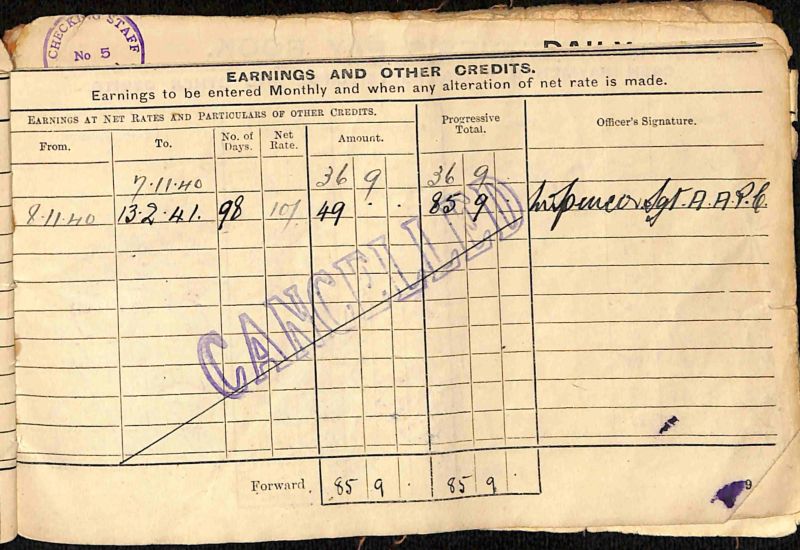 CHECKING STAFF
No 5
EARNINGS AND OTHER CREDITS.
Earnings to be entered Monthly and when any alteration of net rate is made.
EARNINGS AT NET RATES AND PARTICULARS OF OTHER CREDITS.
Progressive Total.
Officer's Signature.
From.
To.
No. of Days.
Net Rate.
Amount.
7.11.40 36 9 36 9
8.11.40 13.2.41. 98 10/ 49 . . 85 9 . Sgt. A.A.P.C
CANCELLED
Forward. 85 9 . 85 9 .
9